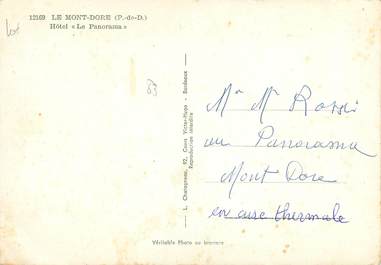 12169 LE MONT-DORE (P.-de-D.)
Hôtel « Le Panorama »
63
L. Chatagneau, 92, Cours Victor-Hugo - Bordeaux
Reproduction interdite
Mr Mr Rossi
au Panorama
Mont Dore
en cure thermale
Véritable Photo au bromure